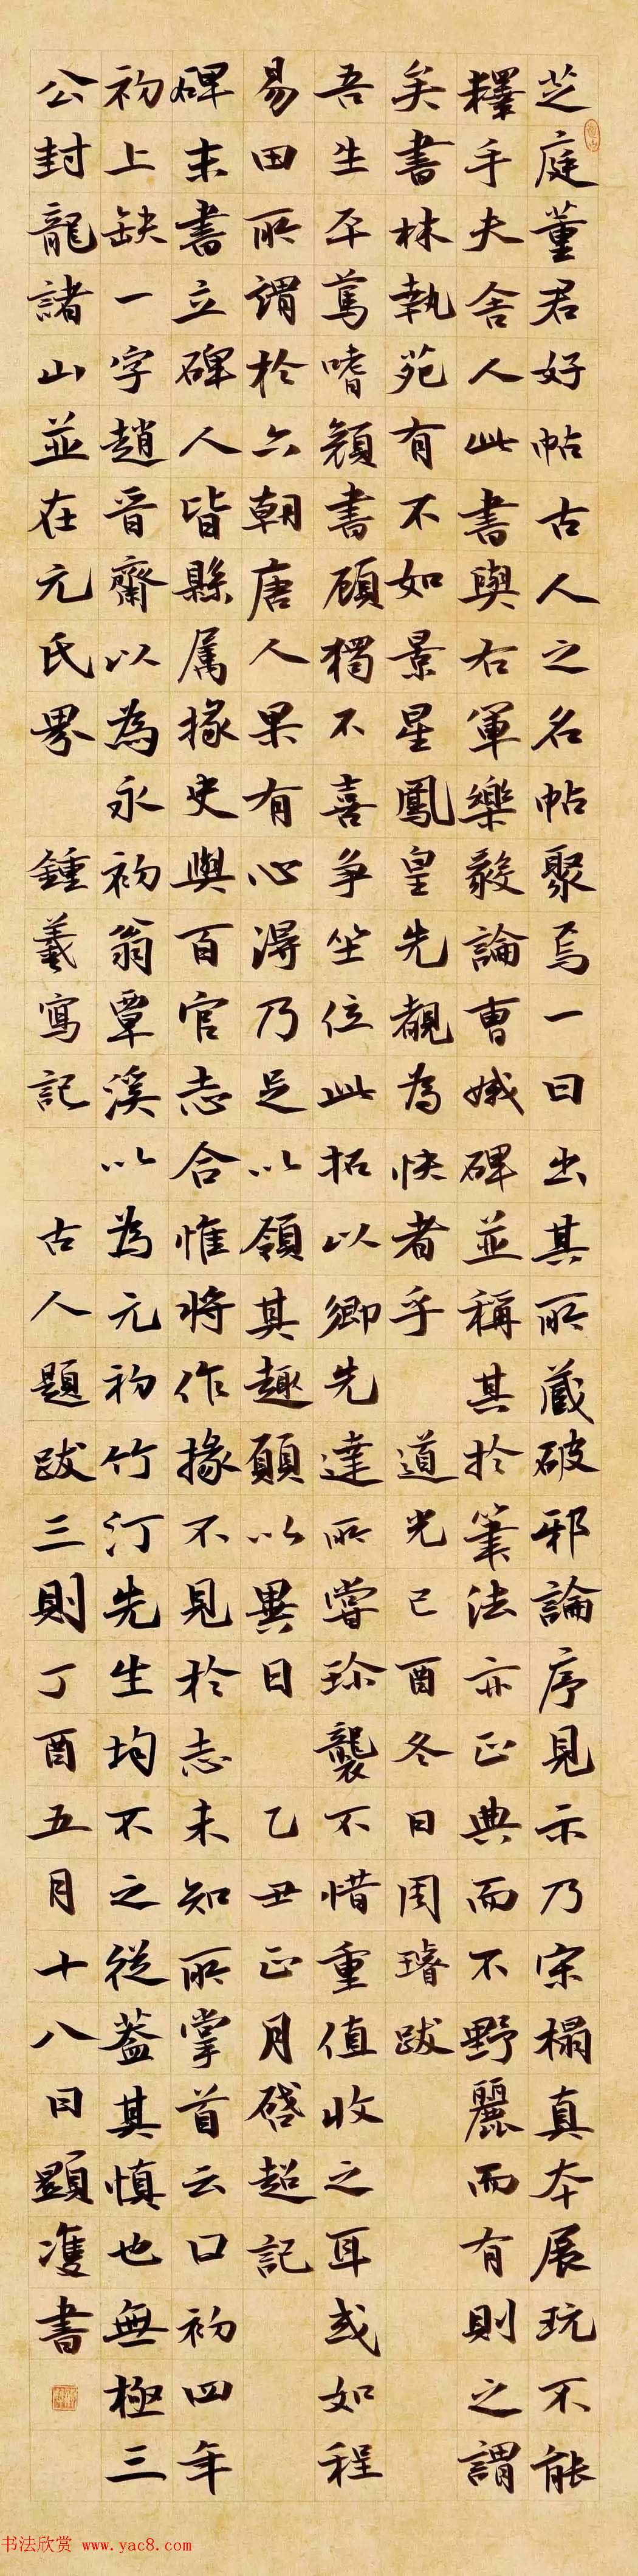 芝庭董君好帖古人之名帖聚焉一日出其所藏破邪論序見示乃宋榻真本展玩不能
釋手夫舍人此書與右軍樂毅論曹娥碑並稱其於筆法亦正典而不野麗而有則之謂
矣書林執苑有不如景星鳳皇先覩為快者乎 道光己酉冬日周璿跋
吾生平篤嗜顏書顧獨不喜爭坐位此拓以卿先達所嘗珍襲不惜重值收之耳或如程
易田所謂於六朝唐人果有心得乃足以領其趣願以異日 乙丑正月啓超記
碑末書立碑人皆縣属掾史與百官志合惟將作掾不見於志未知所掌首云口初四年
初上缺一字趙晋齋以為永初翁覃溪以為元初竹汀先生均不之從蓋其慎也無極三
公封龍諸山並在元氏界 鍾羲寫記 古人題跋三則丁酉五月十八日顯濩書
书法欣赏 www.yac8.com